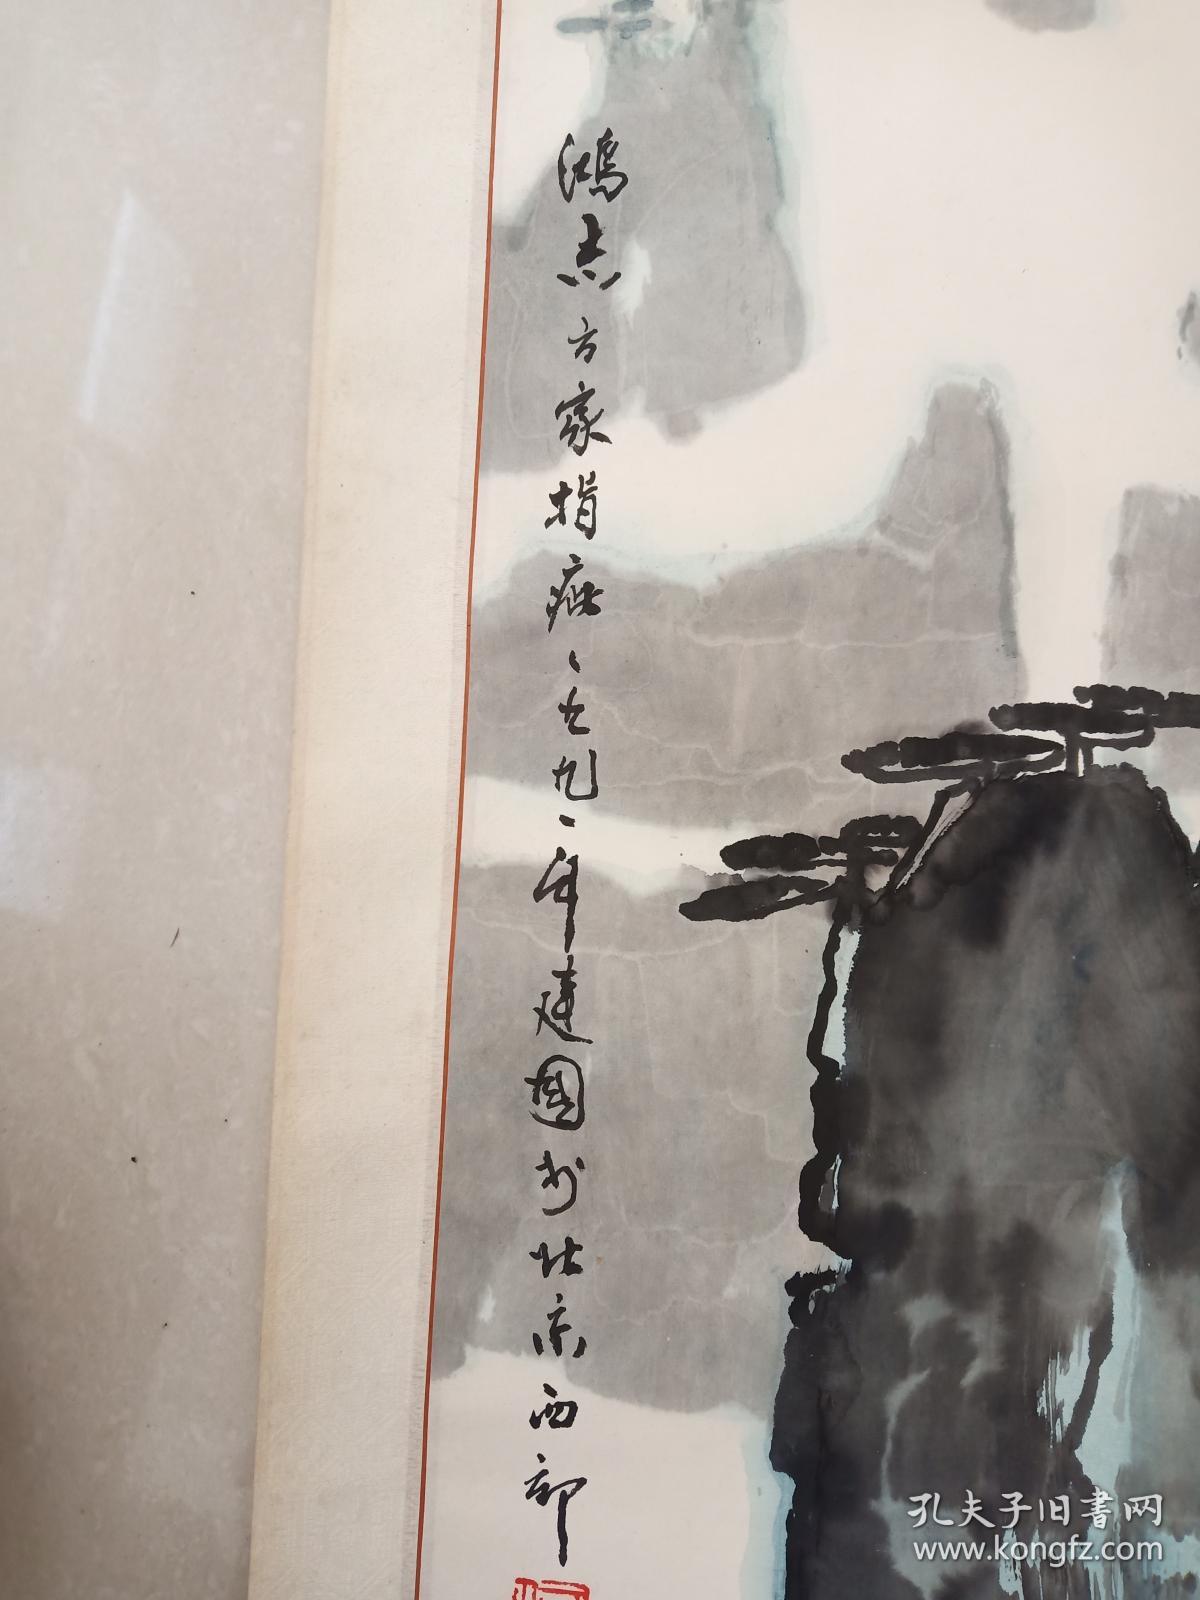 鸿志方家指疵一九九一年建国於北京西部
孔夫子旧書网
www.kongfz.com